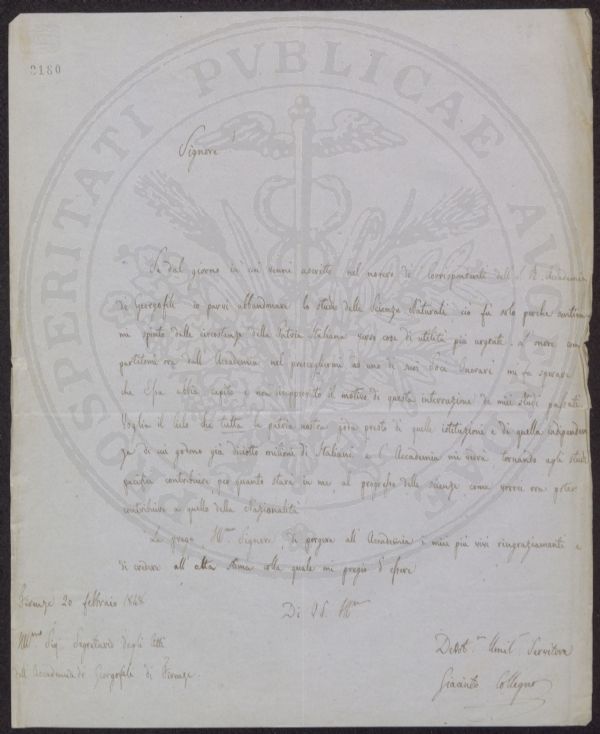 3180
PROSPERITATI PVBLICAE AVGENDAE
Signore
Se dal giorno in cui venni ascritto nel novero de' Corrispondenti dell' I. R. Accademia
de' Georgofili io parvi abbandonare lo studio delle Scienze Naturali ciò fu solo perche sentiva
mi spinto dalle circostanze della Patria Italiana verso cose di utilità più urgente. L'onore com
partitomi ora dall' Accademia nel prescegliermi ad uno di suoi Soci Onorari mi fa sperare
che Essa abbia capito e non disapprovato il motivo di questa interruzione de' miei studi passati.
Voglia il Cielo che tutta la patria nostra goda presto di quelle istituzioni e di quella indipenden
za di cui godono già diciotto milioni di Italiani e l'Accademia mi vedrà tornando agli studi
pacifici contribuire per quanto starà in me, al progresso delle scienze come vorrei ora poter
contribuire a quello della Nazionalità
La prego, Ill.mo Signore, di porgere all' Accademia i miei più vivi ringraziamenti e
di credere all' alta stima colla quale mi pregio d'essere
Di V.S. Ill.ma
Firenze 20 febbraio 1848
Ill.mo Sig. Segretario degli Atti
dell' Accademia de' Georgofili di Firenze.
Devot.mo Umil. Servitore
Giacinto Collegno